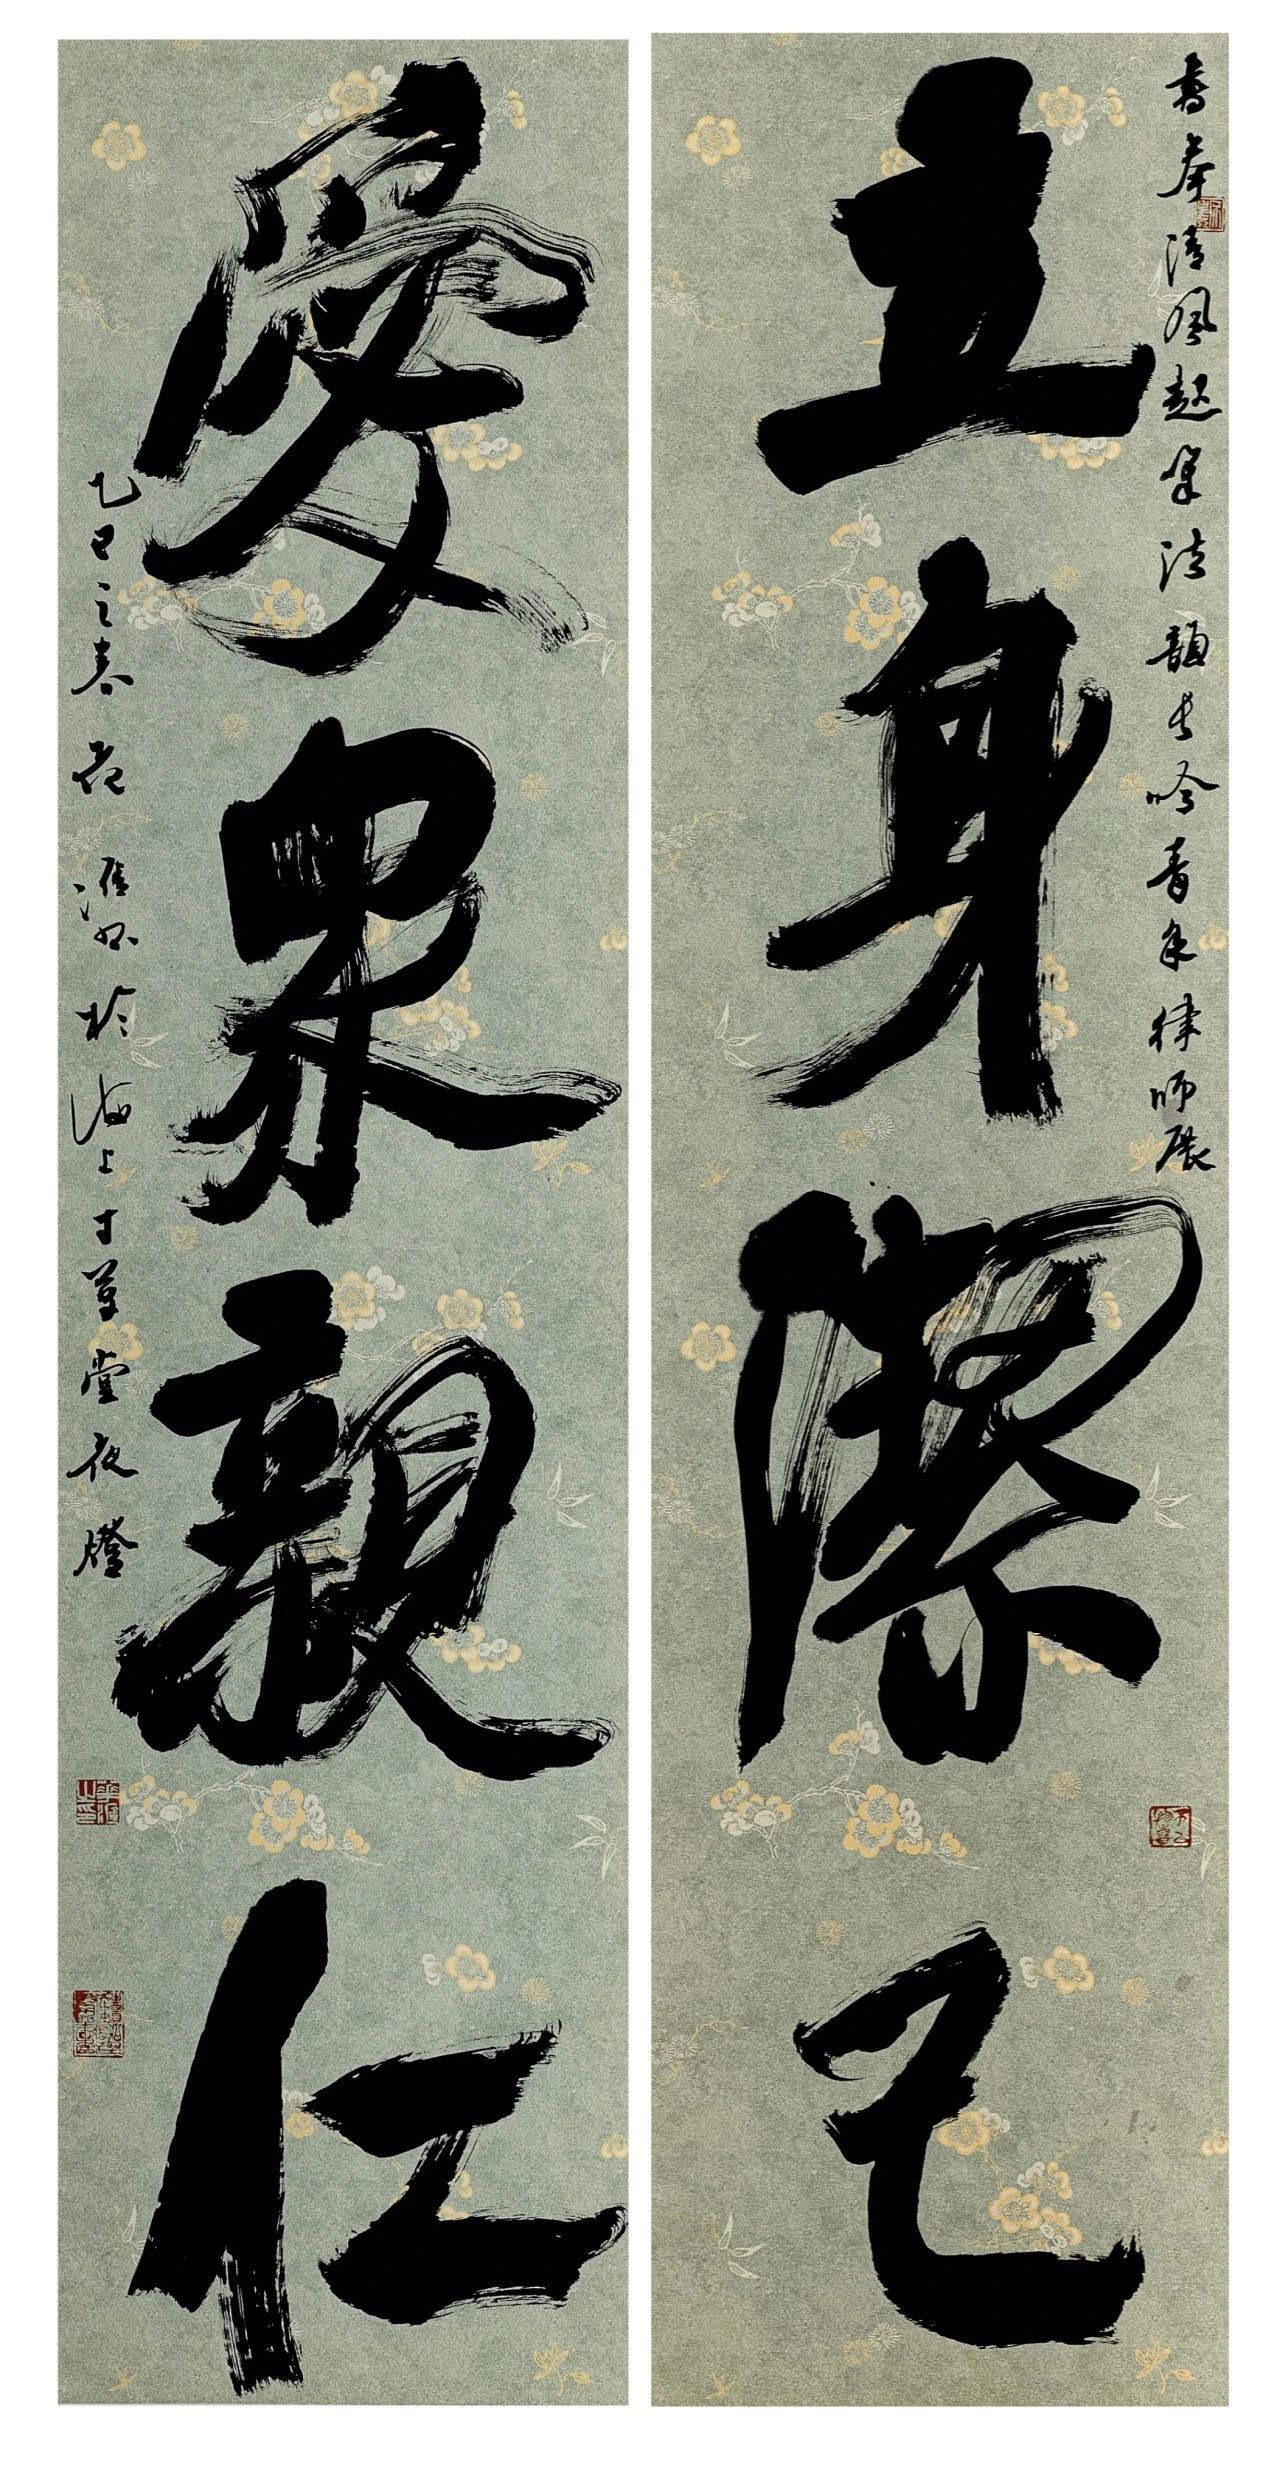 書奉清風起筆法韻長吟青年律師展
立身潔己
愛眾親仁
乙巳之春花淮於海上寸草堂夜燈